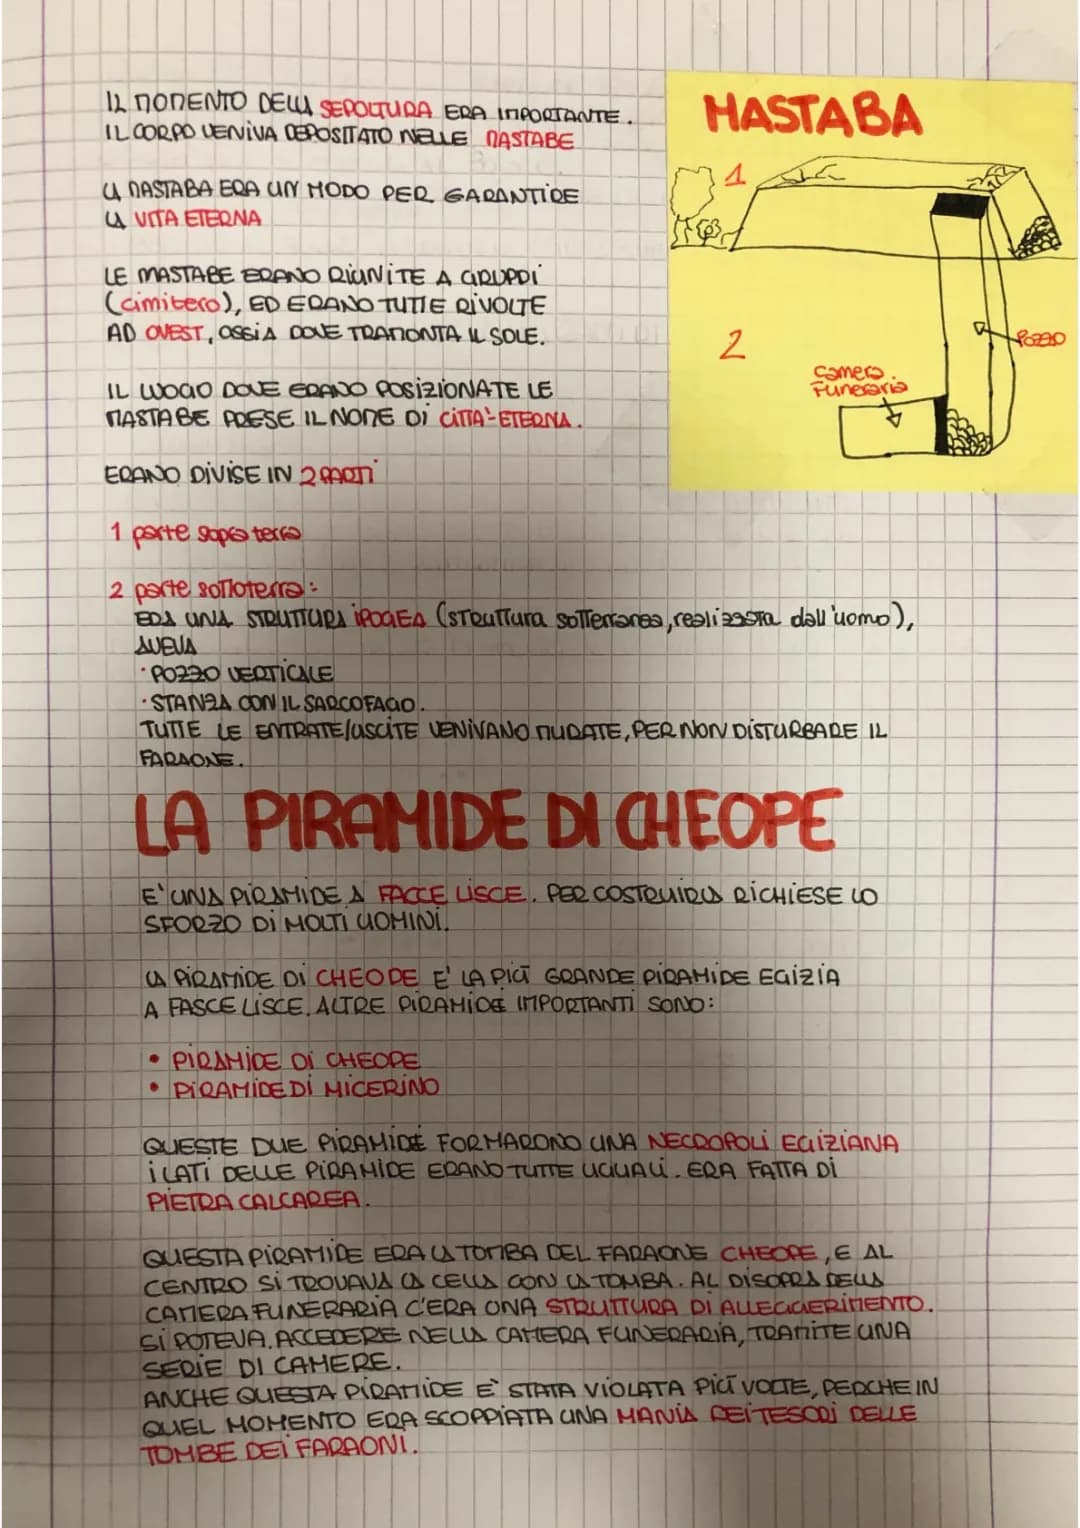 IL MOMENTO DELLA SEPOLTURA ERA IMPORTANTE.
IL CORPO VENIVA DEPOSITATO NELLE MASTABE
LA MASTABA ERA UN MODO PER GARANTIRE
LA VITA ETERNA
LE MASTABE ERANO RIUNITE A GRUPPI
(cimitero), ED ERANO TUTTE RIVOLTE
AD OVEST, OSSIA DOVE TRAMONTA IL SOLE.
IL LUOGO DOVE ERANO POSIZIONATE LE
MASTABE PRESE IL NOME DI CITTA' ETERNA.
ERANO DIVISE IN 2 PARTI
1 parte sopra terra
2 parte sottoterra:
ERA UNA STRUTTURA IPOGEA (struttura sotterranea, realizzata dall'uomo),
AVEVA
· POZZO VERTICALE
· STANZA CON IL SARCOFAGO.
TUTTE LE ENTRATE/USCITE VENIVANO MURATE, PER NON DISTURBARE IL
FARAONE.
MASTABA
1
2
Pozzo
Camera
Funeraria
LA PIRAMIDE DI CHEOPE
E' UNA PIRAMIDE A FACCE LISCE. PER COSTRUIRLA RICHIESE LO
SFORZO DI MOLTI UOMINI.
LA PIRAMIDE DI CHEOPE E' LA PIÙ GRANDE PIRAMIDE EGIZIA
A FASCE LISCE. ALTRE PIRAMIDE IMPORTANTI SONO:
• PIRAMIDE DI CHEOPE
• PIRAMIDE DI MICERINO
QUESTE DUE PIRAMIDE FORMARONO UNA NECROPOLI EGIZIANA
I LATI DELLE PIRAMIDE ERANO TUTTE UGUALI. ERA FATTA DI
PIETRA CALCAREA.
QUESTA PIRAMIDE ERA LA TOMBA DEL FARAONE CHEOPE, E AL
CENTRO SI TROVAVA LA CELLA CON LA TOMBA. AL DISOPRA DELLA
CAMERA FUNERARIA C'ERA UNA STRUTTURA DI ALLEGGERIMENTO.
SI POTEVA ACCEDERE NELLA CAMERA FUNERARIA, TRAMITE UNA
SERIE DI CAMERE.
ANCHE QUESTA PIRAMIDE E' STATA VIOLATA PIÙ VOLTE, PERCHE IN
QUEL MOMENTO ERA SCOPPIATA UNA MANIA DEI TESORI DELLE
TOMBE DEI FARAONI.